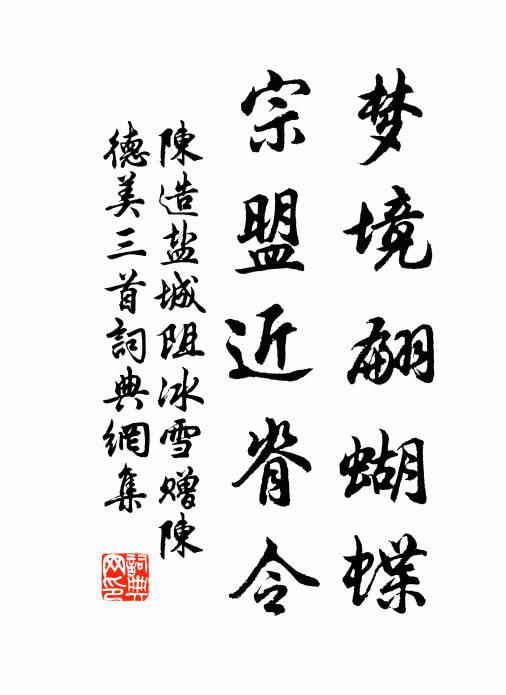 梦境翩蝴蝶
宗盟近脊令
陳造盐城阻冰雪赠陳
德美三首詞典網集
詞典
网印